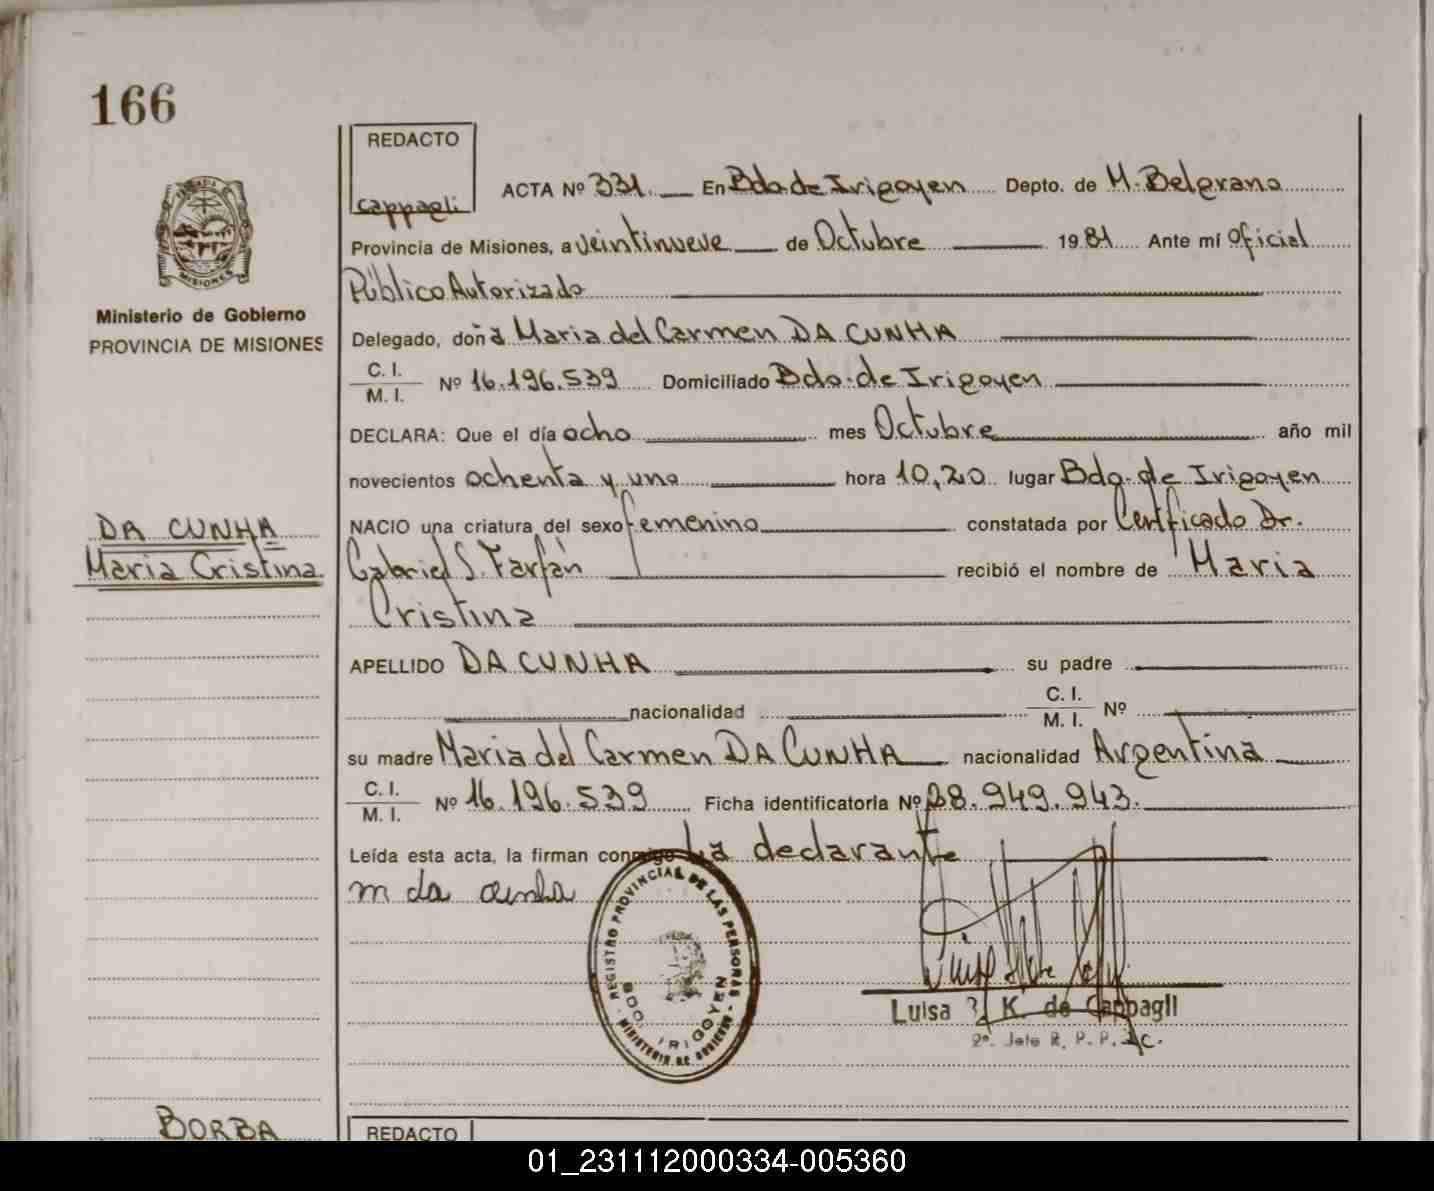 166
REDACTO
Cappagli
ACTA Nº 331. En Bdo. de Irigoyen Depto. de M. Belgrano
Provincia de Misiones, a veintinueve de Octubre 1981 Ante mí Oficial
Público Autorizado
Ministerio de Gobierno
PROVINCIA DE MISIONES
Delegado, doña Maria del Carmen DA CUNHA
C. I.
M. I.
Nº 16.196.539 Domiciliado Bdo. de Irigoyen
DECLARA: Que el día ocho mes Octubre año mil
novecientos ochenta y uno hora 10,20 lugar Bdo. de Irigoyen
DA CUNHA
Maria Cristina
NACIO una criatura del sexo femenino constatada por Certificado Dr.
Gabriel S. Farfán recibió el nombre de Maria
Cristina
APELLIDO DA CUNHA su padre
nacionalidad C. I.
M. I. Nº
su madre Maria del Carmen DA CUNHA nacionalidad Argentina
C. I.
M. I.
Nº 16.196.539 Ficha identificatoria Nº 28.949.943.
Leída esta acta, la firman conmigo La declarante
m da cunha
REGISTRO PROVINCIAL DE LAS PERSONAS
BDO. IRIGOYEN
MINISTERIO DE GOBIERNO
Luisa K. de Cappagli
2º. Jefe R. P. P.
BORBA
REDACTO
01_231112000334-005360